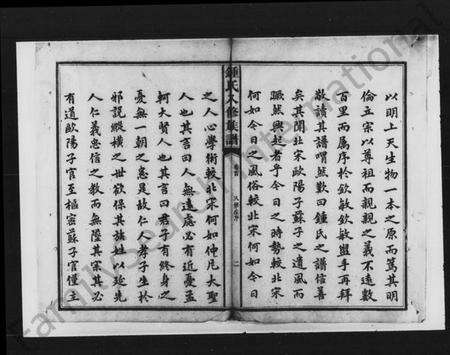 以明上天生物一本之原而篤其明
倫立宗以尊祖而親親之義不遠數
百里而属序於欽敏欽敏盥手再拜
敬讀其譜喟然歎曰鍾氏之譜信善
矣其聞北宋歐陽子蘇子之遺風而
蹶然興起者乎今日之時勢較北宋
何如今日之風俗較北宋何如今日
鍾氏八修族譜
之人心學術較北宋何如仲尼大聖
人也其言曰人無遠慮必有近憂孟
軻大賢人也其言曰君子有終身之
憂無一朝之患是故仁人孝子生於
邪説縱横之世欲保其族姓以延先
人仁義忠信之教而無墜其宗其必
有道歐陽子官至樞密蘇子官僅主